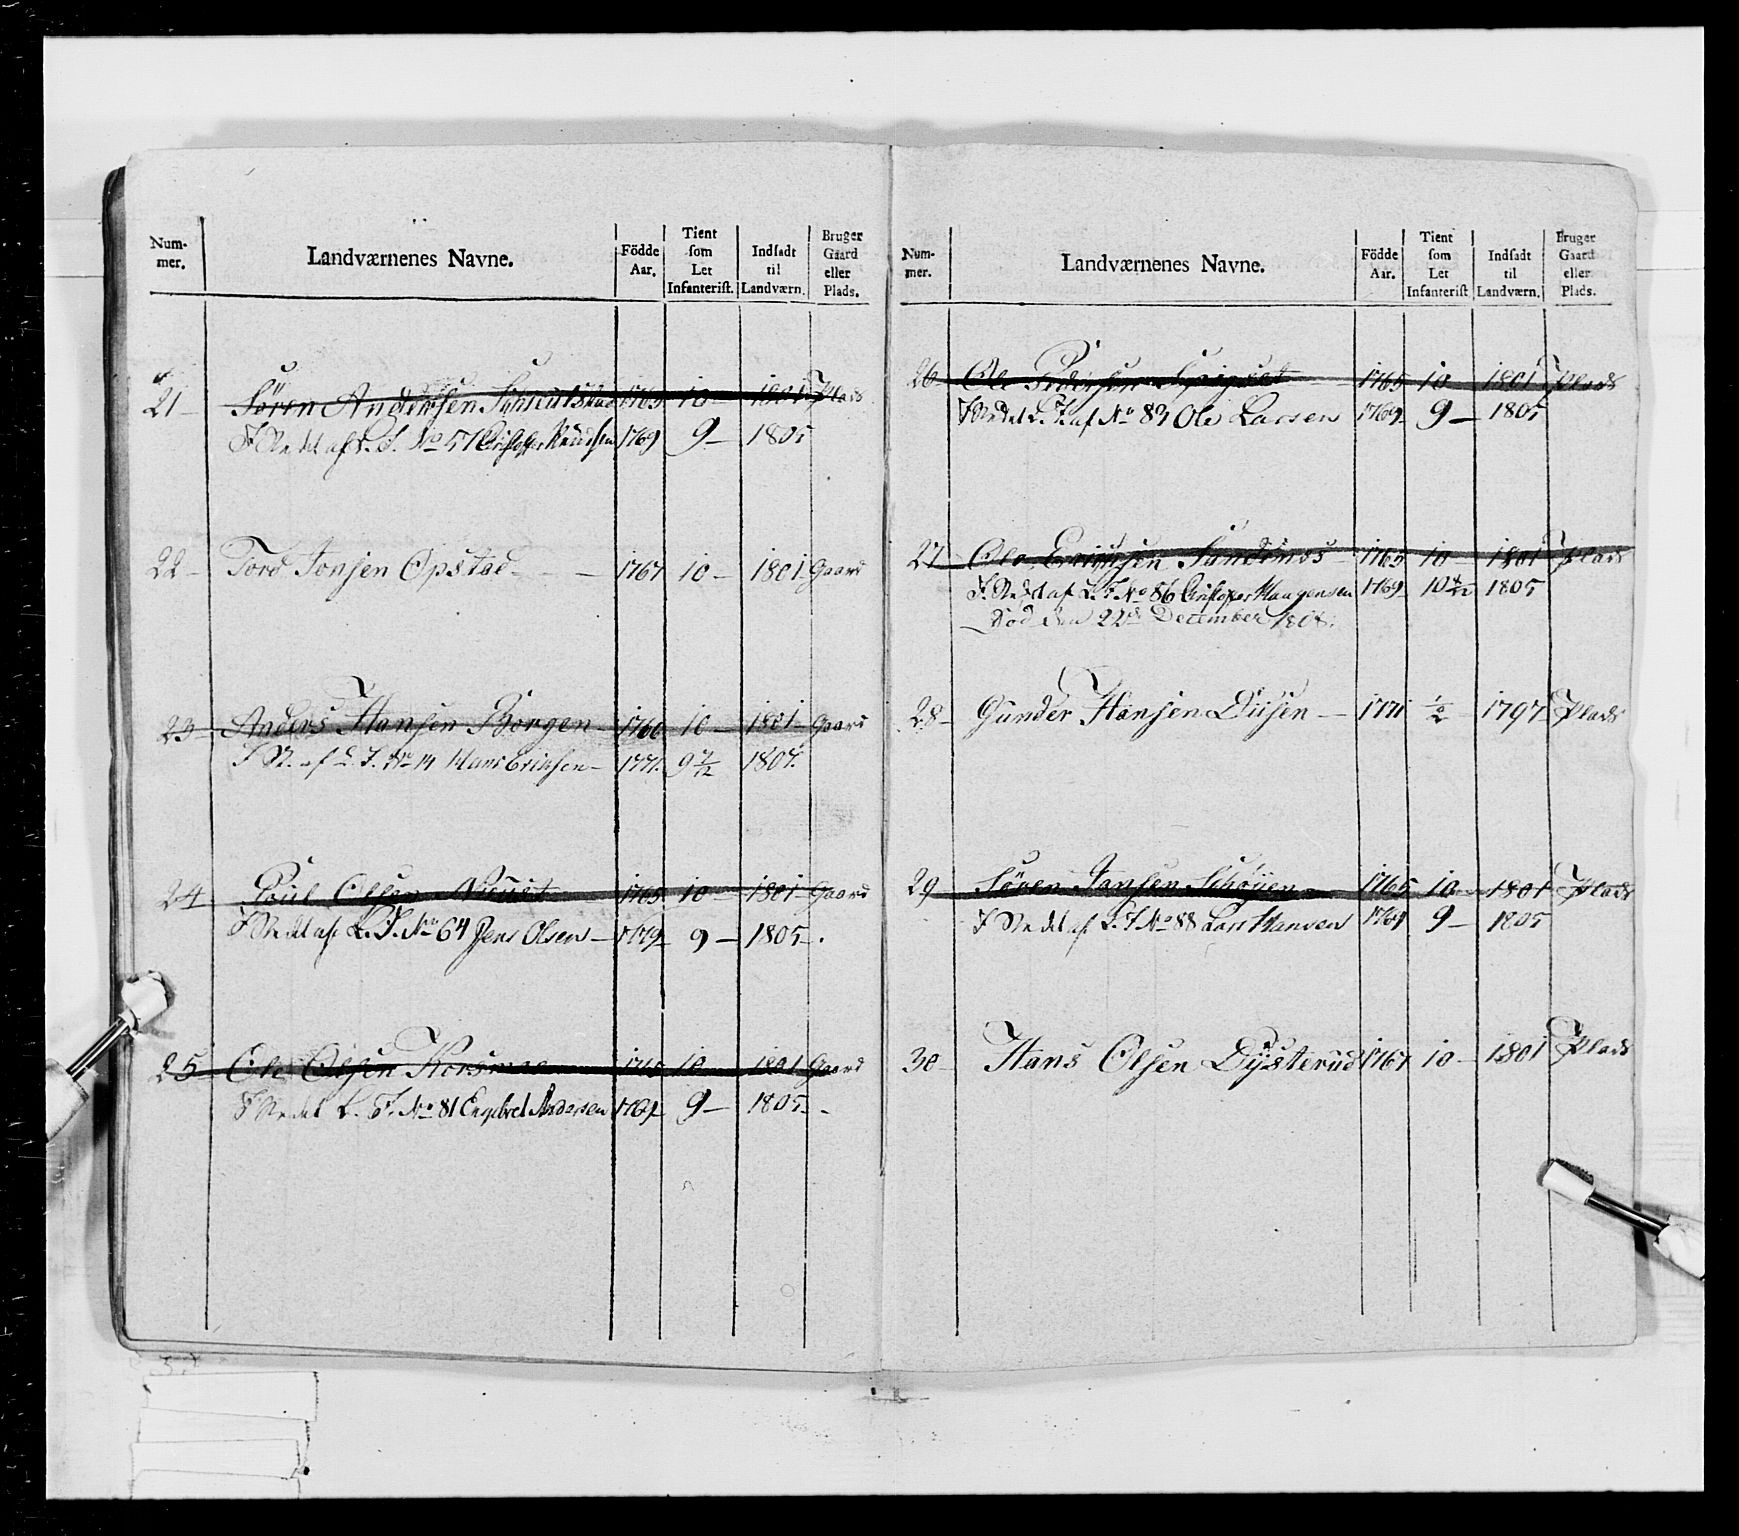 Num-
mer.
Landværnenes Navne.
Födde
Aar.
Tient
som
Let
Infanterist.
Indsadt
til
Landværn.
Bruger
Gaard
eller
Plads.
21 – Sören Andersen 1765 10 – 1801 Plads
I Stedet af L. I. No 57 Christopher Knudsen 1769 9 – 1805
22 – Tord Jonsen Opstad – – 1767 10 – 1801 Gaard
23 – Anders Hansen Borgen – 1766 10 – 1801 Gaard
I St. af L. I. No 14 Hans Eriksen – 1771. 9 7/12 1807.
24 Poul Olsen 1765 10 – 1801 Gaard
I Stedet af L. I. No 64 Jens Olsen – 1769 9 – 1805 – .
25 – Ole Olsen Korsmoe 1765 10 – 1801 Gaard
I Stedet L. I. No 81 Engebret Andersen 1769 9 – 1805 – .
Num-
mer.
Landværnenes Navne.
Födde
Aar.
Tient
som
Let
Infanterist.
Indsadt
til
Landværn.
Bruger
Gaard
eller
Plads.
26 Ole Pedersen 1765 10 – 1801 Plads
I Stedet L. I. af No 83 Ole Larsen 1769 9 – 1805
27 – Ole Ericksen Sundemoe – 1765 10 – 1801 Plads
I Stedet af L. I. No 86 Christopher Haagensen 1769 10 1805
Död den 22de December
28 – Gunder Hansen – 1771 1797 Plads
29 Sören Jansen Schøyen – 1765 10 – 1801 Plads
I Stedet af L. I. No 88 Lars Hansen 1769 9 – 1805
30 – Hans Olsen Dÿsterud 1767 10 – 1801 Plads